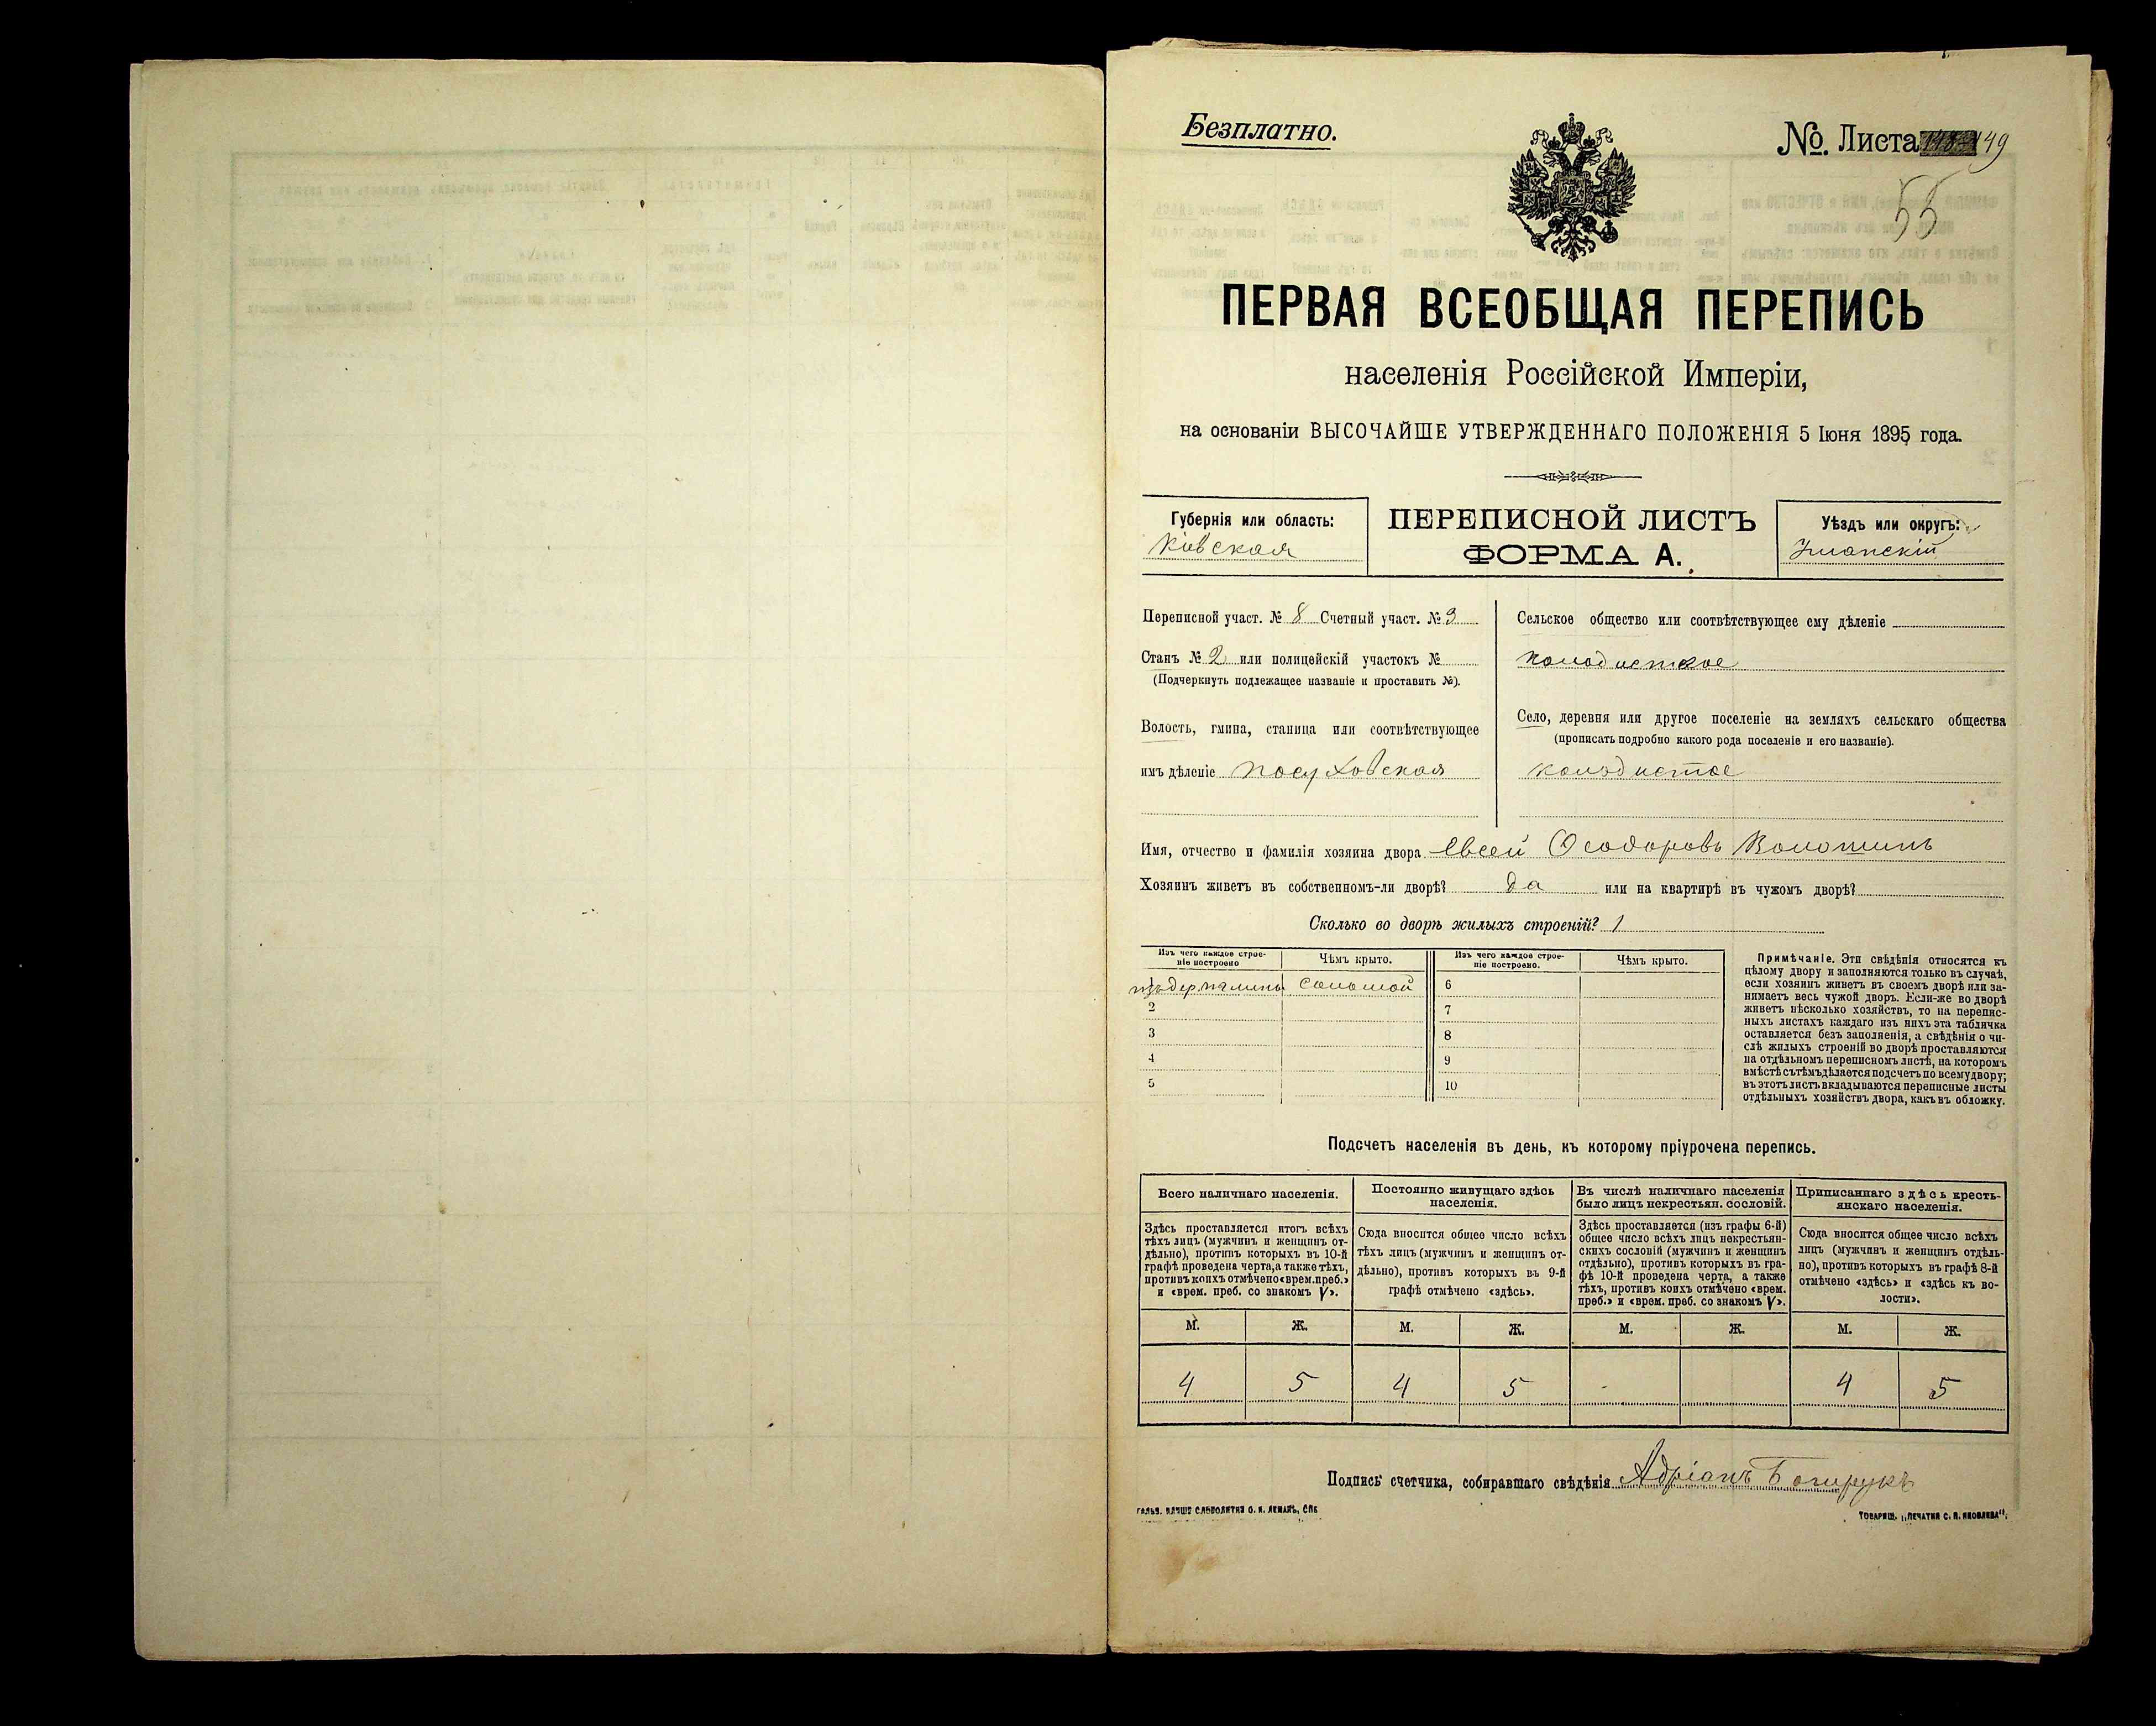 Безплатно.
№. Листа 149
55
ПЕРВАЯ ВСЕОБЩАЯ ПЕРЕПИСЬ
населенія Россійской Имперіи,
на основаніи ВЫСОЧАЙШЕ УТВЕРЖДЕННАГО ПОЛОЖЕНІЯ 5 Іюня 1895 года.
Губернія или область:
Кіевская
ПЕРЕПИСНОЙ ЛИСТЪ
ФОРМА А.
Уѣздъ или округъ:
Уманскій
Переписной участ. № 8 Счетный участ. № 3
Станъ № 2 или полицейскій участокъ №
(Подчеркнуть подлежащее названіе и проставить №).
Волость, гмина, станица или соотвѣтствующее
имъ дѣленіе Посуховская
Сельское общество или соотвѣтствующее ему дѣленіе
колодистое
Село, деревня или другое поселеніе на земляхъ сельскаго общества
(прописать подробно какого рода поселеніе и его названіе).
колодистое
Имя, отчество и фамилія хозяина двора Евсей Ѳеодоровъ Волошинъ
Хозяинъ живетъ въ собственномъ-ли дворѣ? да или на квартирѣ въ чужомъ дворѣ?
Сколько во дворѣ жилыхъ строеній? 1
Изъ чего каждое строе-
ніе построено
Чѣмъ крыто.
Изъ чего каждое строе-
ніе построено.
Чѣмъ крыто.
1 изъ дер. глины соломой 6
2 7
3 8
4 9
5 10
Примѣчаніе. Эти свѣдѣнія относятся къ
цѣлому двору и заполняются только въ случаѣ,
если хозяинъ живетъ въ своемъ дворѣ или за-
нимаетъ весь чужой дворъ. Если-же во дворѣ
живетъ нѣсколько хозяйствъ, то на перепис-
ныхъ листахъ каждаго изъ нихъ эта табличка
оставляется безъ заполненія, а свѣдѣнія о чи-
слѣ жилыхъ строеній во дворѣ проставляются
на отдѣльномъ переписномъ листѣ, на которомъ
вмѣстѣ съ тѣмъ дѣлается подсчетъ по всему двору;
въ этотъ листъ вкладываются переписные листы
отдѣльныхъ хозяйствъ двора, какъ въ обложку.
Подсчетъ населенія въ день, къ которому пріурочена перепись.
Всего наличнаго населенія.
Здѣсь проставляется итогъ всѣхъ
тѣхъ лицъ (мужчинъ и женщинъ от-
дѣльно), противъ которыхъ въ 10-й
графѣ проведена черта, а также тѣхъ,
противъ коихъ отмѣчено «врем. преб.»
и «врем. преб. со знакомъ V».
Постоянно живущаго здѣсь
населенія.
Сюда вносится общее число всѣхъ
тѣхъ лицъ (мужчинъ и женщинъ от-
дѣльно), противъ которыхъ въ 9-й
графѣ отмѣчено «здѣсь».
Въ числѣ наличнаго населенія
было лицъ некрестьян. сословій.
Здѣсь проставляется (изъ графы 6-й)
общее число всѣхъ лицъ некрестьян-
скихъ сословій (мужчинъ и женщинъ
отдѣльно), противъ которыхъ въ гра-
фѣ 10-й проведена черта, а также
тѣхъ, противъ коихъ отмѣчено «врем.
преб.» и «врем. преб. со знакомъ V».
Приписаннаго здѣсь кресть-
янскаго населенія.
Сюда вносится общее число всѣхъ
лицъ (мужчинъ и женщинъ отдѣль-
но), противъ которыхъ въ графѣ 8-й
отмѣчено «здѣсь» и «здѣсь къ во-
лости».
М. Ж. М. Ж. М. Ж. М. Ж.
4 5 4 5 - 4 5
Подпись счетчика, собиравшаго свѣдѣнія Адріанъ
ТОВАРИЩ. „ПЕЧАТНЯ С. П. ЯКОВЛЕВА".